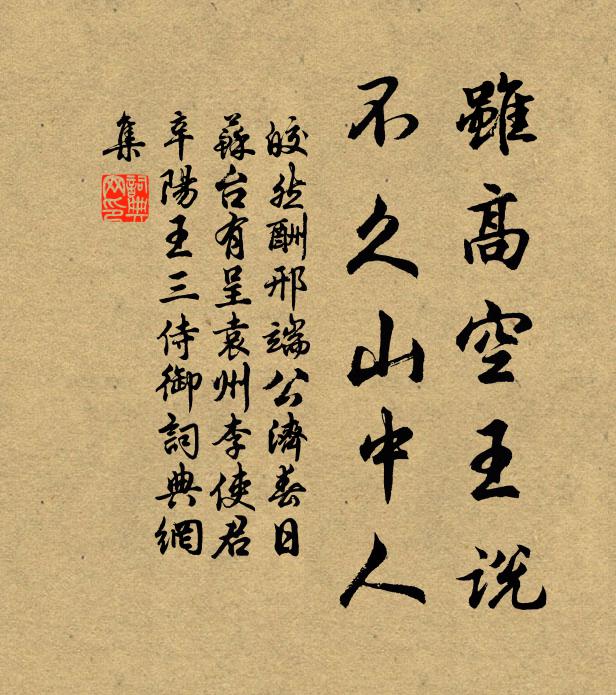 雖高空王說
不久山中人
皎然酬邢端公濟春日
蘇台有呈袁州李使君
辛陽王三侍御詞典網
集
詞典網印